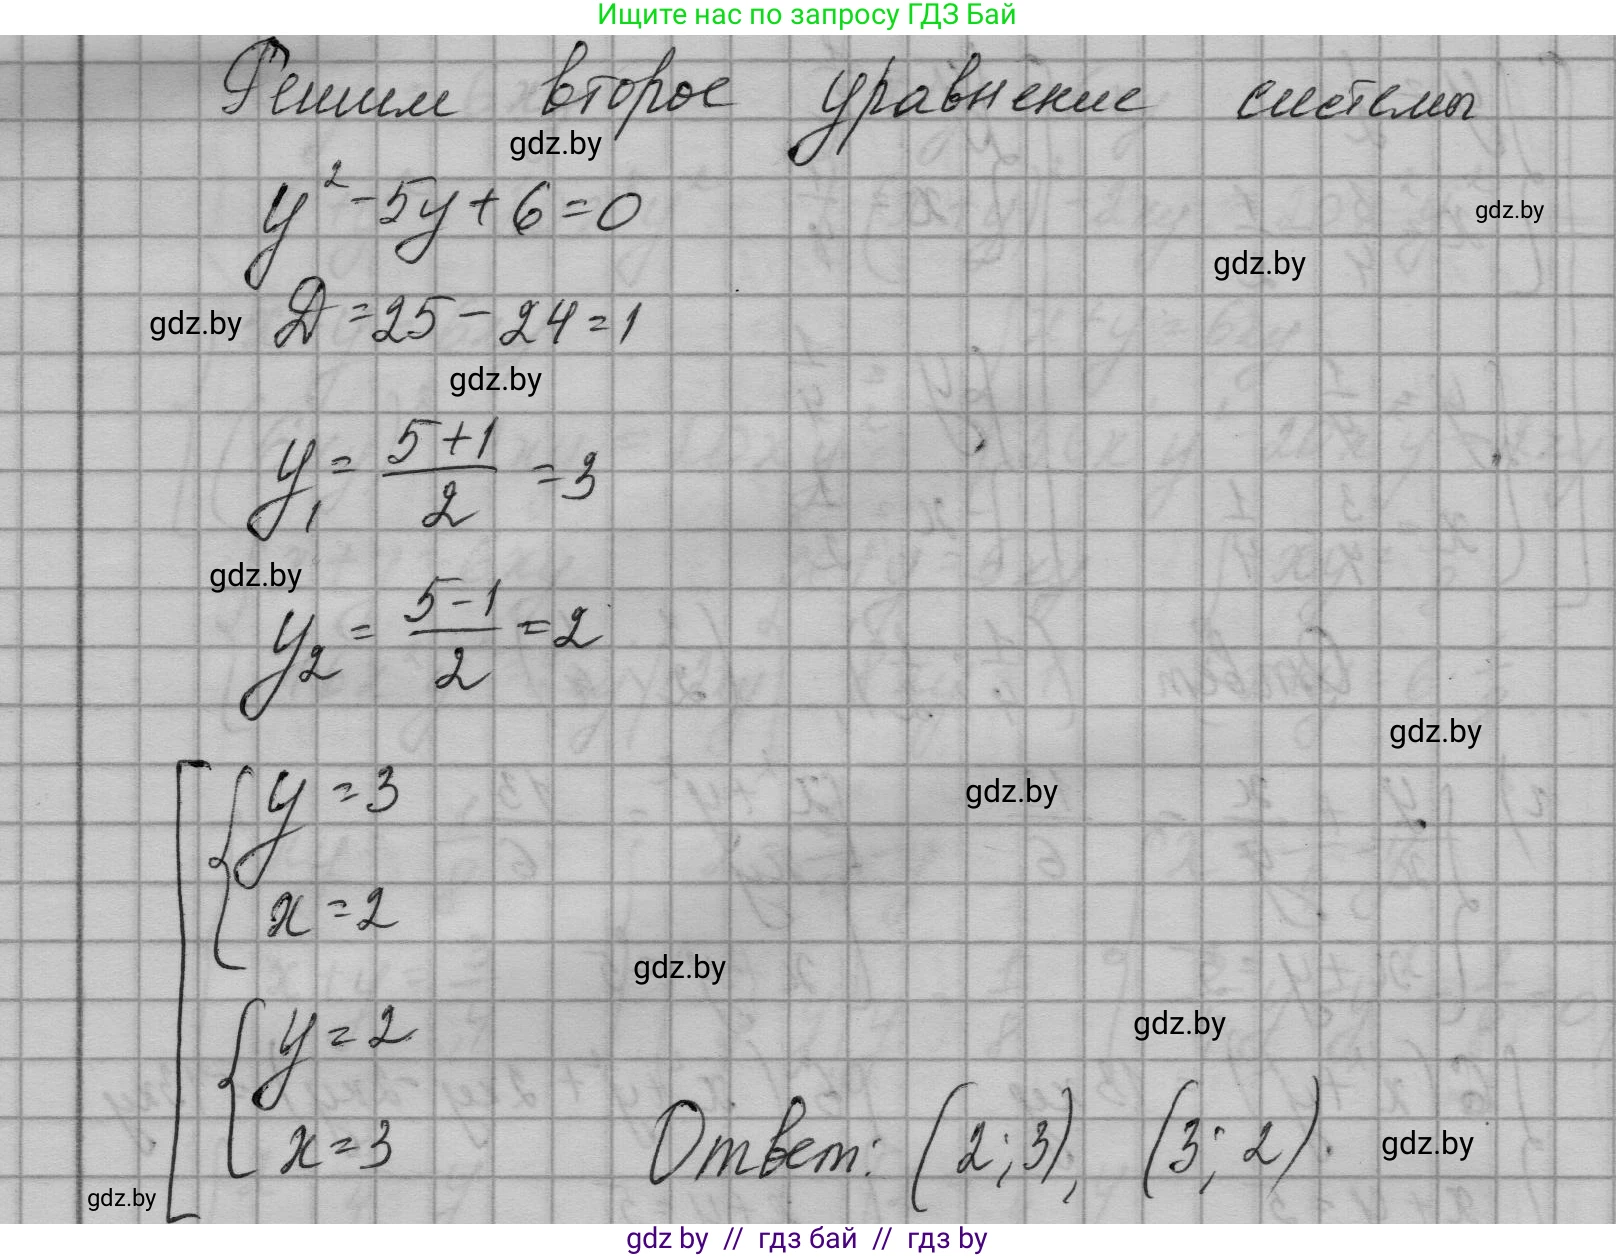 Ищите нас по запросу ГДЗ Бай
Решим второе уравнение системы
gdz.by
y² - 5y + 6 = 0
gdz.by
gdz.by
gdz.by Д = 25 - 24 = 1
gdz.by
y₁ = (5+1)/2 = 3
gdz.by
y₂ = (5-1)/2 = 2
gdz.by
y = 3
gdz.by
x = 2
gdz.by
y = 2
gdz.by
x = 3
Ответ: (2; 3), (3; 2).
gdz.by
gdz.by
gdz by // гдз бай // гдз by